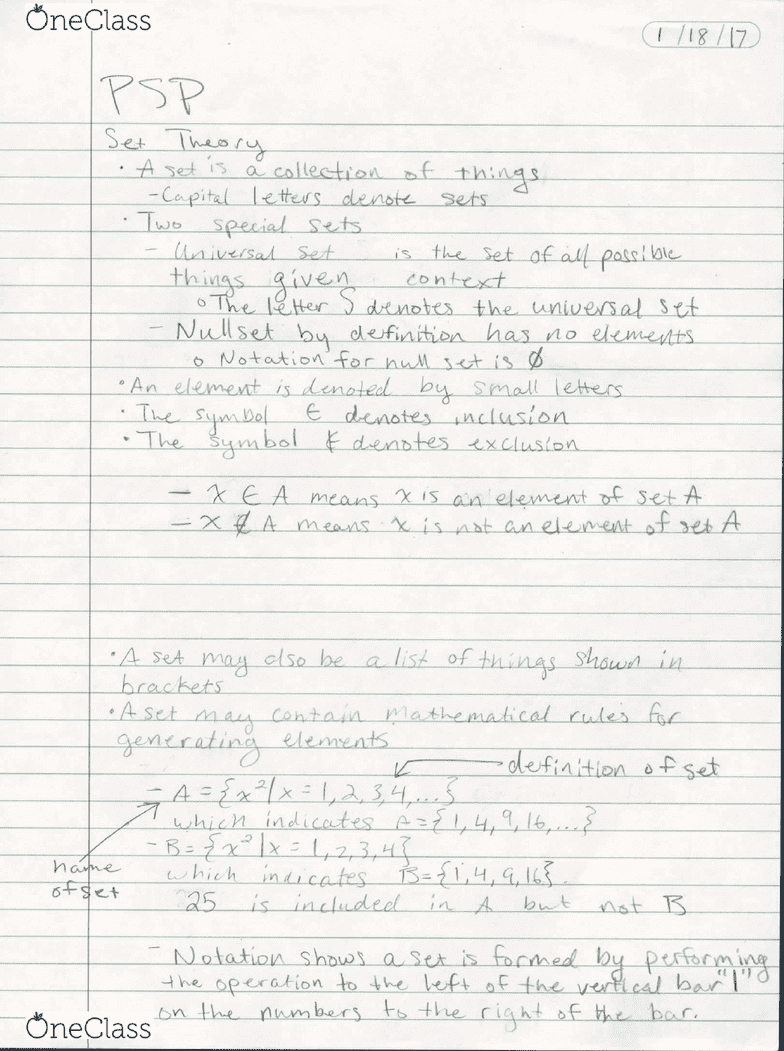 OneClass
1/18/17
PSP
Set Theory
· A set is a collection of things
- Capital letters denote sets
· Two special sets
- Universal set is the set of all possible
things given context
o The letter S denotes the universal set
- Nullset by definition has no elements
o Notation for null set is Ø
· An element is denoted by small letters
· The symbol ∈ denotes inclusion
· The symbol ∉ denotes exclusion
- x ∈ A means x is an element of set A
- x ∉ A means x is not an element of set A
· A set may also be a list of things shown in
brackets
· A set may contain mathematical rules for
generating elements
definition of set
- A = {x²|x = 1, 2, 3, 4, ...}
which indicates A = {1, 4, 9, 16, ...}
- B = {x²|x = 1, 2, 3, 4}
name
of set
which indicates B = {1, 4, 9, 16}.
25 is included in A but not B
- Notation shows a set is formed by performing
the operation to the left of the vertical bar "|"
on the numbers to the right of the bar.
OneClass